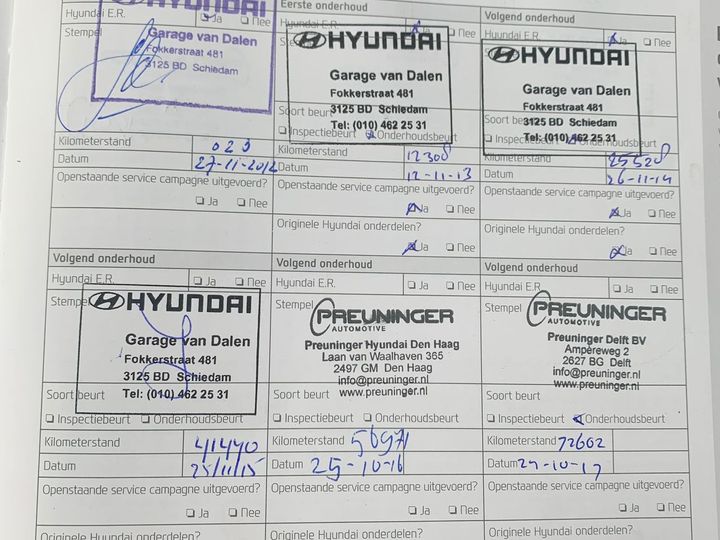 Hyundai E.R. Ja Nee
HYUNDAI
Stempel
Garage van Dalen
Fokkerstraat 481
3125 BD Schiedam
Kilometerstand 023
Datum 27-11-2012
Openstaande service campagne uitgevoerd?
Ja Nee
Eerste onderhoud
Hyundai E.R. Ja Nee
HYUNDAI
Garage van Dalen
Fokkerstraat 481
3125 BD Schiedam
Tel: (010) 462 25 31
Soort beurt
Inspectiebeurt Onderhoudsbeurt
Kilometerstand 12308
Datum 12-11-13
Openstaande service campagne uitgevoerd?
Ja Nee
Originele Hyundai onderdelen?
Ja Nee
Volgend onderhoud
Hyundai E.R. Ja Nee
HYUNDAI
Garage van Dalen
Fokkerstraat 481
3125 BD Schiedam
Tel: (010) 462 25 31
Soort
Inspectiebeurt Onderhoudsbeurt
Kilometerstand 25528
Datum 26-11-14
Openstaande service campagne uitgevoerd?
Ja Nee
Originele Hyundai onderdelen?
Ja Nee
Volgend onderhoud
Hyundai E.R. Ja Nee
Stempel
HYUNDAI
Garage van Dalen
Fokkerstraat 481
3125 BD Schiedam
Tel: (010) 462 25 31
Soort beurt
Inspectiebeurt Onderhoudsbeurt
Kilometerstand 41440
Datum 25/11/15
Openstaande service campagne uitgevoerd?
Ja Nee
Originele Hyundai onderdelen?
Volgend onderhoud
Hyundai E.R. Ja Nee
Stempel
PREUNINGER
AUTOMOTIVE
Preuninger Hyundai Den Haag
Laan van Waalhaven 365
2497 GM Den Haag
info@preuninger.nl
www.preuninger.nl
Soort beurt
Inspectiebeurt Onderhoudsbeurt
Kilometerstand 56971
Datum 25-10-16
Openstaande service campagne uitgevoerd?
Ja Nee
Originele Hyundai onderdelen?
Volgend onderhoud
Hyundai E.R. Ja Nee
Stempel
PREUNINGER
AUTOMOTIVE
Preuninger Delft BV
Ampèreweg 2
2627 BG Delft
info@preuninger.nl
www.preuninger.nl
Soort beurt
Inspectiebeurt Onderhoudsbeurt
Kilometerstand 72602
Datum 27-10-17
Openstaande service campagne uitgevoerd?
Ja Nee
Originele Hyundai onderdelen?